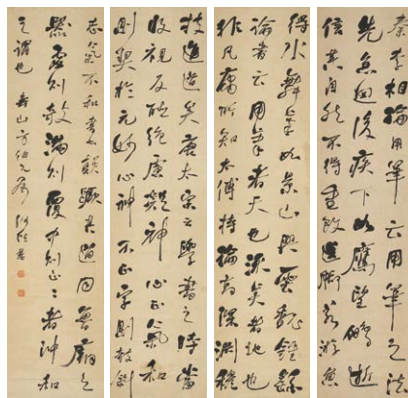 秦李相論用筆云用筆之法
先急迴後疾下如鷹望鵬逝
信其自然不得重改送脚若游魚
得水舞筆如景山興雲魏鍾繇
論書云用筆者天也流美者地也
非凡庸所知太傅特論高深淵穆
技進道矣唐太宗云學書之時當
收視反聽絕慮凝神心正氣和
則契於元妙心神不正字則敧斜
志氣不和書必顛蹶其道同魯廟之
器虛則敧滿則覆中則正正者沖和
之謂也 壽山方伯